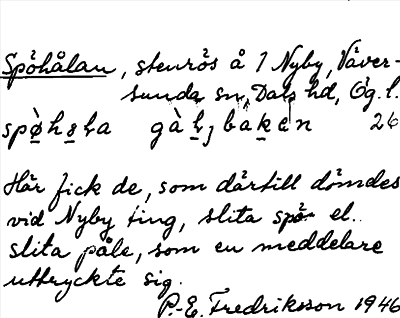 Spöhålan, stenrös å 1 Nyby, Väver-
sunda sn, Dals hd, Ög. l.
spø̀hɷla gàl, baken 26
Här fick de, som därtill dömdes
vid Nyby ting, slita spö el.
slita påle, som en meddelare
uttryckte sig.
P.-E. Fredriksson 1946